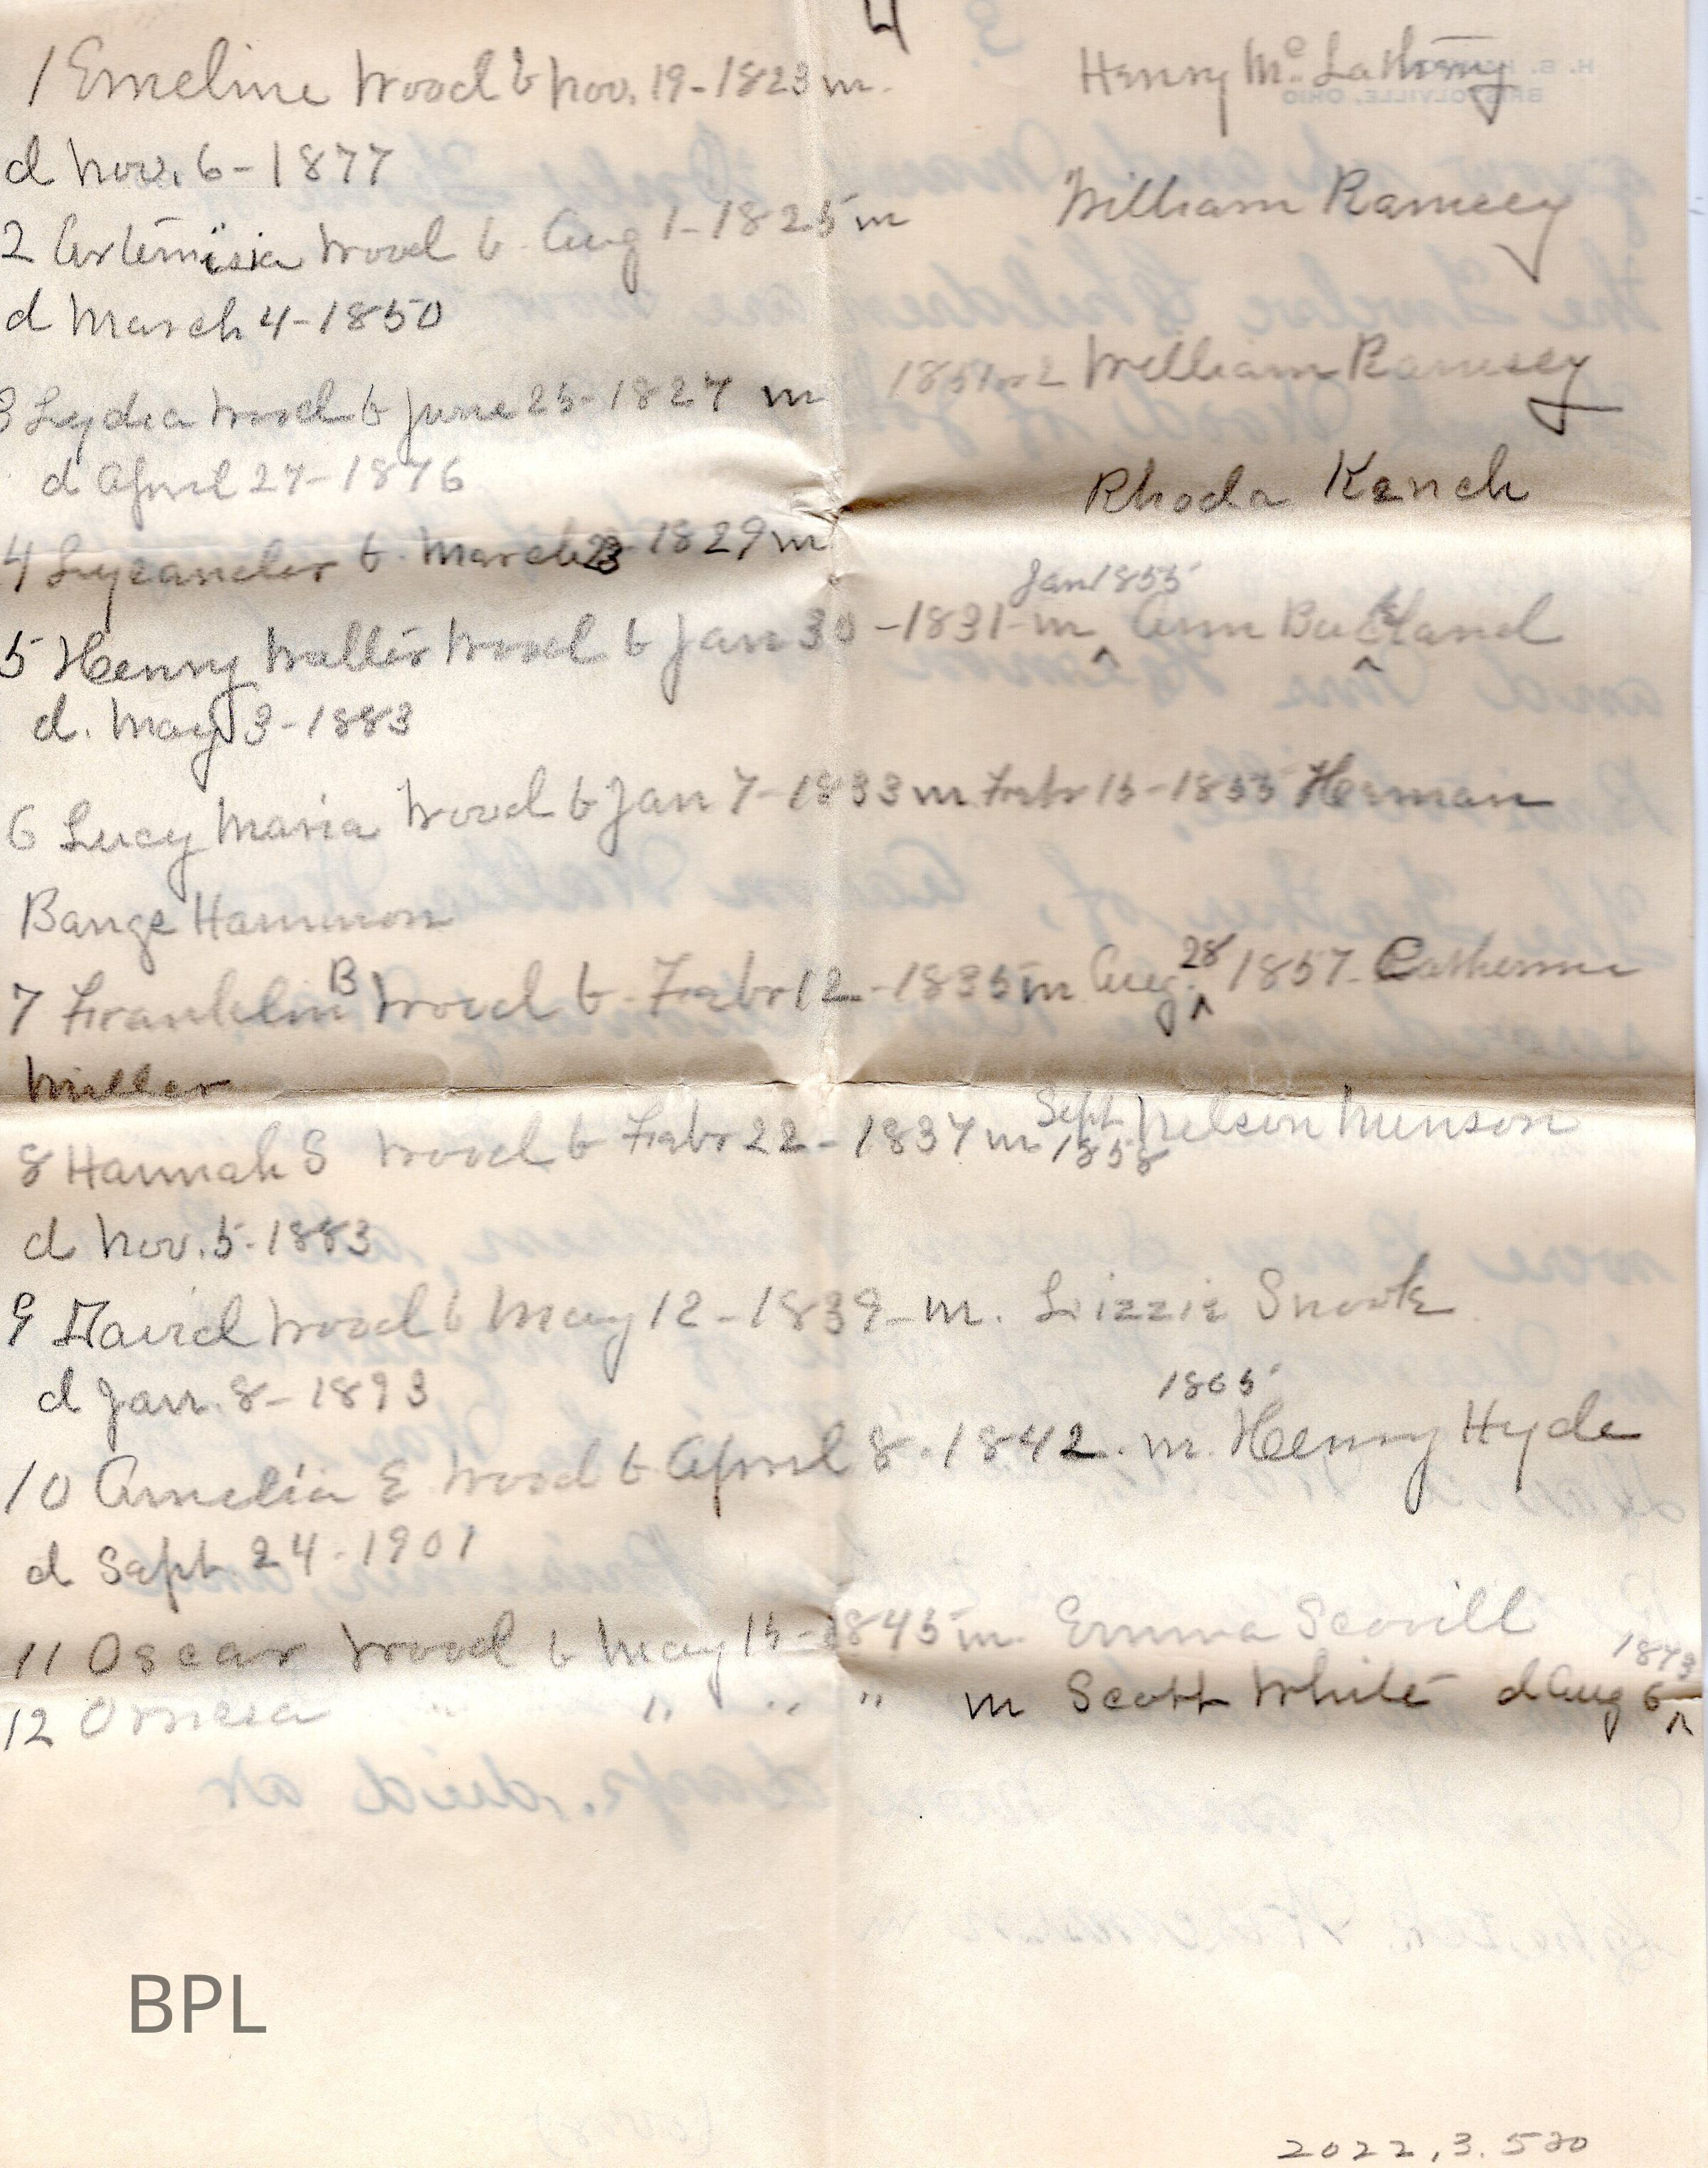 4
1 Emeline Wood b Nov. 19-1823 m. Henry Mc. Lathrey
d Nov. 6-1877
2 Artemisia Wood b. Aug 1-1825 m William Ramsey
d March 4-1850
3 Lydia Wood b June 25-1827 m 1851 William Ramsey
d April 27-1876
4 Lysander b. March 23 1829 m Rhoda Kench
Jan 1855
5 Henry Walter Wood b Jan 30-1831-m ^ Ann Buckland
d. May 3-1883
6 Lucy Maria Wood b Jan 7-1833 m Febr 15-1855 Herman
Bange Hammon
7 Franklin B Wood b. Febr 12-1835 m Aug. ^28 1857- Catherine
Miller
8 Hannah S Wood b Febr 22-1837 m Sept 1858 Nelson Munson
d Nov. 5-1883
9 David Wood b May 12-1839-m. Lizzie Snook
d Jan. 8-1893
1865
10 Amelia E Wood b April 8-1842. m. Henry Hyde
d Sept 24-1901
11 Oscar Wood b May 15-1845 m. Emma Scovill
1873
12 " " " " m Scott White d Aug 6 ^
BPL
2022.3.520